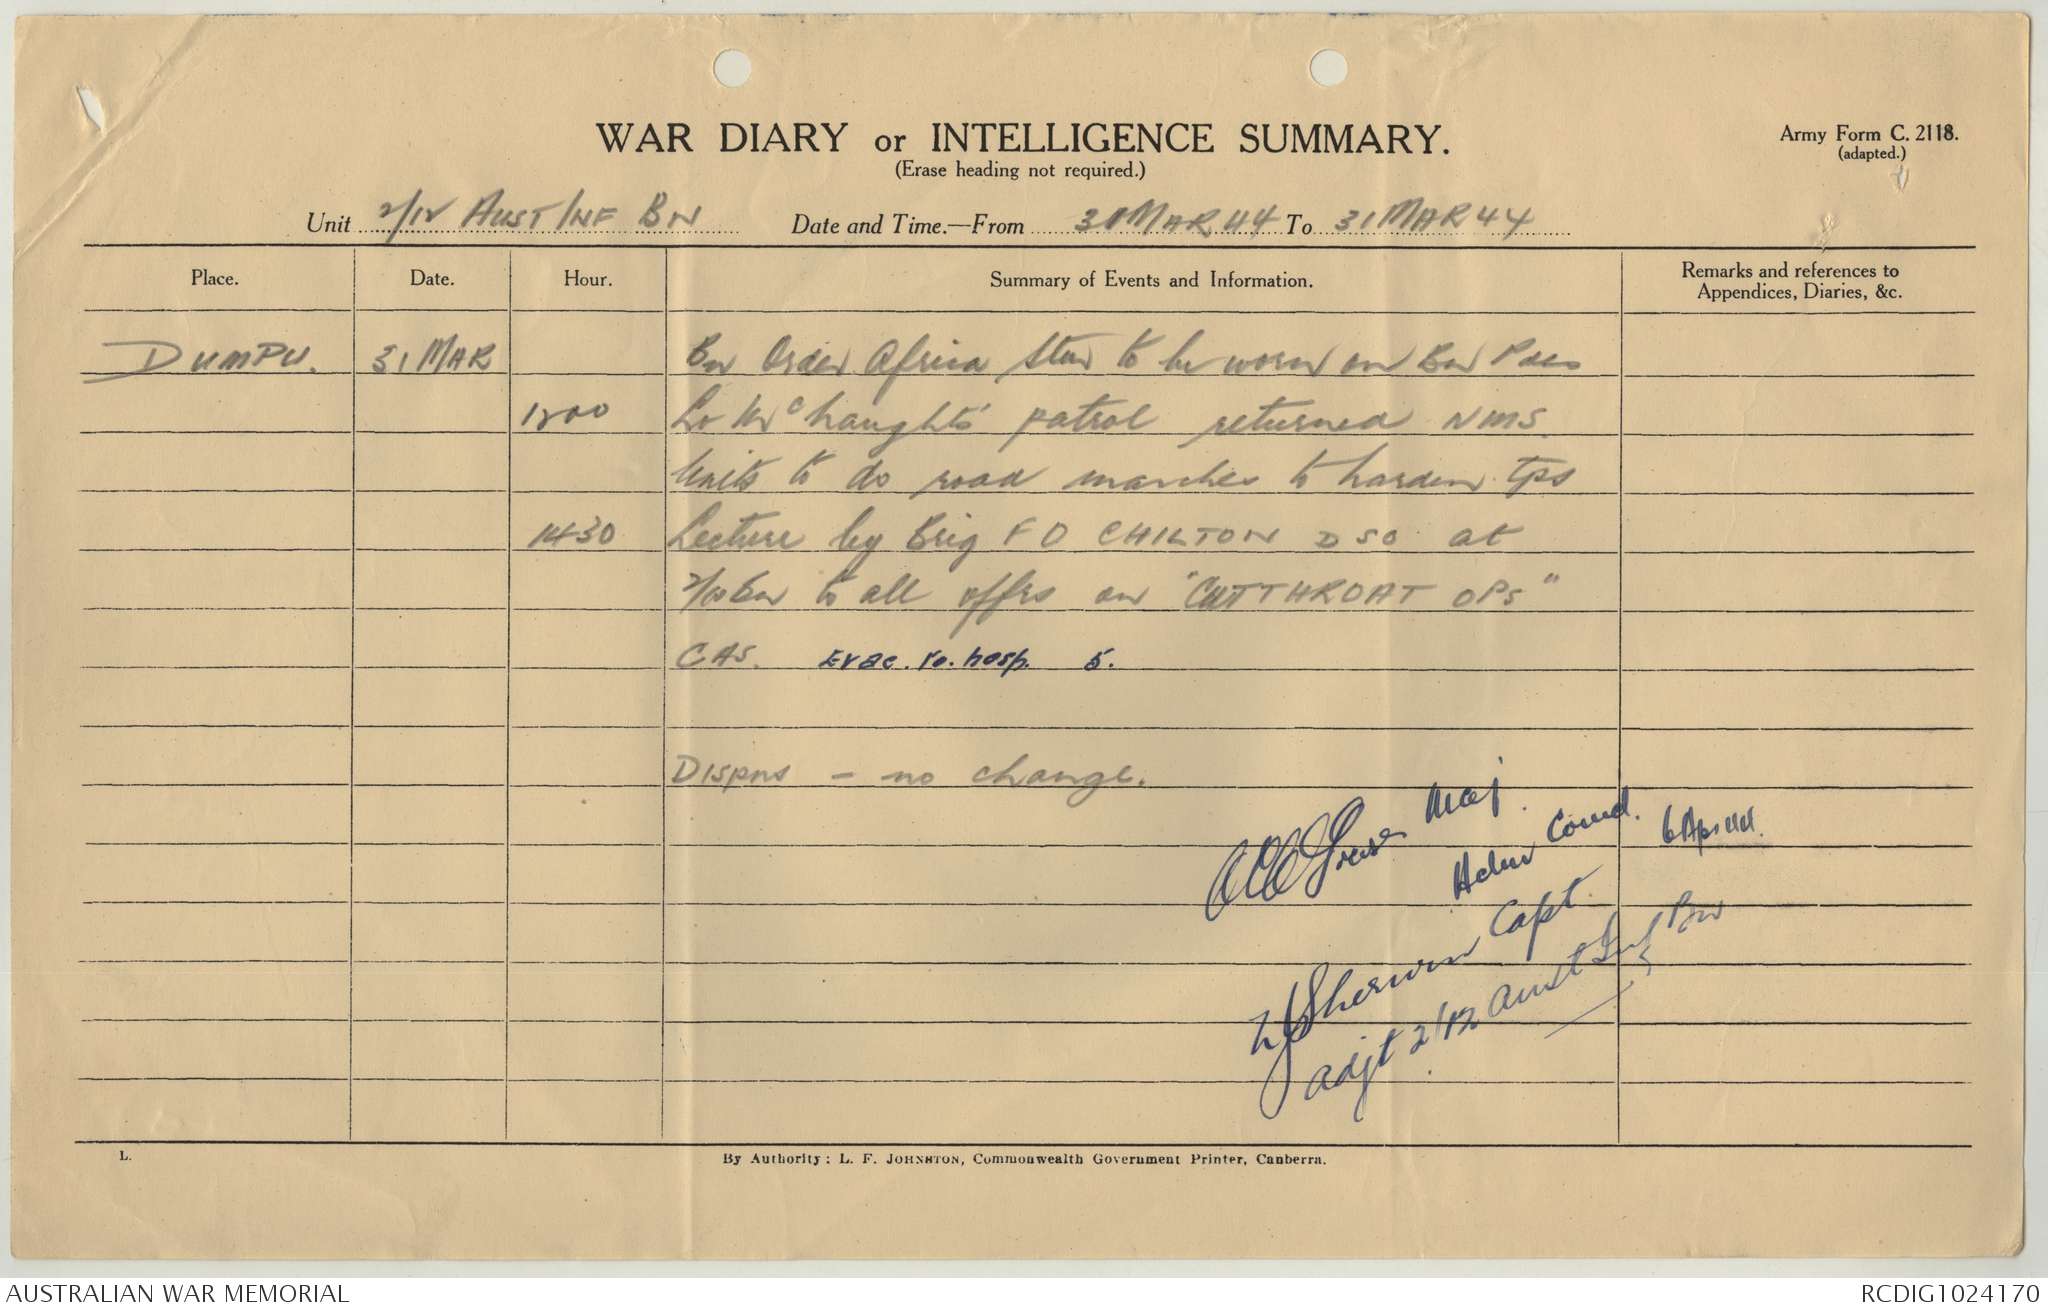 WAR DIARY or INTELLIGENCE SUMMARY.
(Erase heading not required.)
Army Form C. 2118.
(adapted.)
Unit 2/12 AUST INF BN Date and Time.—From 31 MAR 44 To 31 MAR 44
Place. Date. Hour. Summary of Events and Information. Remarks and references to Appendices, Diaries, &c.
DUMPU. 31 MAR Bn Order Africa Star to be worn on Bn Pdes
1200 patrol returned NMS.
Units to do road marches to harden tps
1430 Lecture by Brig F O CHILTON DSO at
2/10 Bn to all offrs on "CUTTHROAT OPS"
CAS. Evac. to. hosp. 5.
Dispns - no change.
Maj.
Comd. 6 Apr 44.
Sherwin Capt.
Adjt 2/12 Aust Inf Bn
L.
By Authority: L. F. JOHNSTON, Commonwealth Government Printer, Canberra.
AUSTRALIAN WAR MEMORIAL
RCDIG1024170